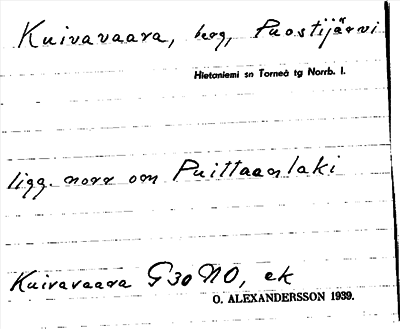 Kuivavaara, berg, Puostijärvi
Hietaniemi sn Torneå tg Norrb. l.
ligg. norr om Puittaanlaki
Kuivavaara G30 NO, ek
O. ALEXANDERSSON 1939.